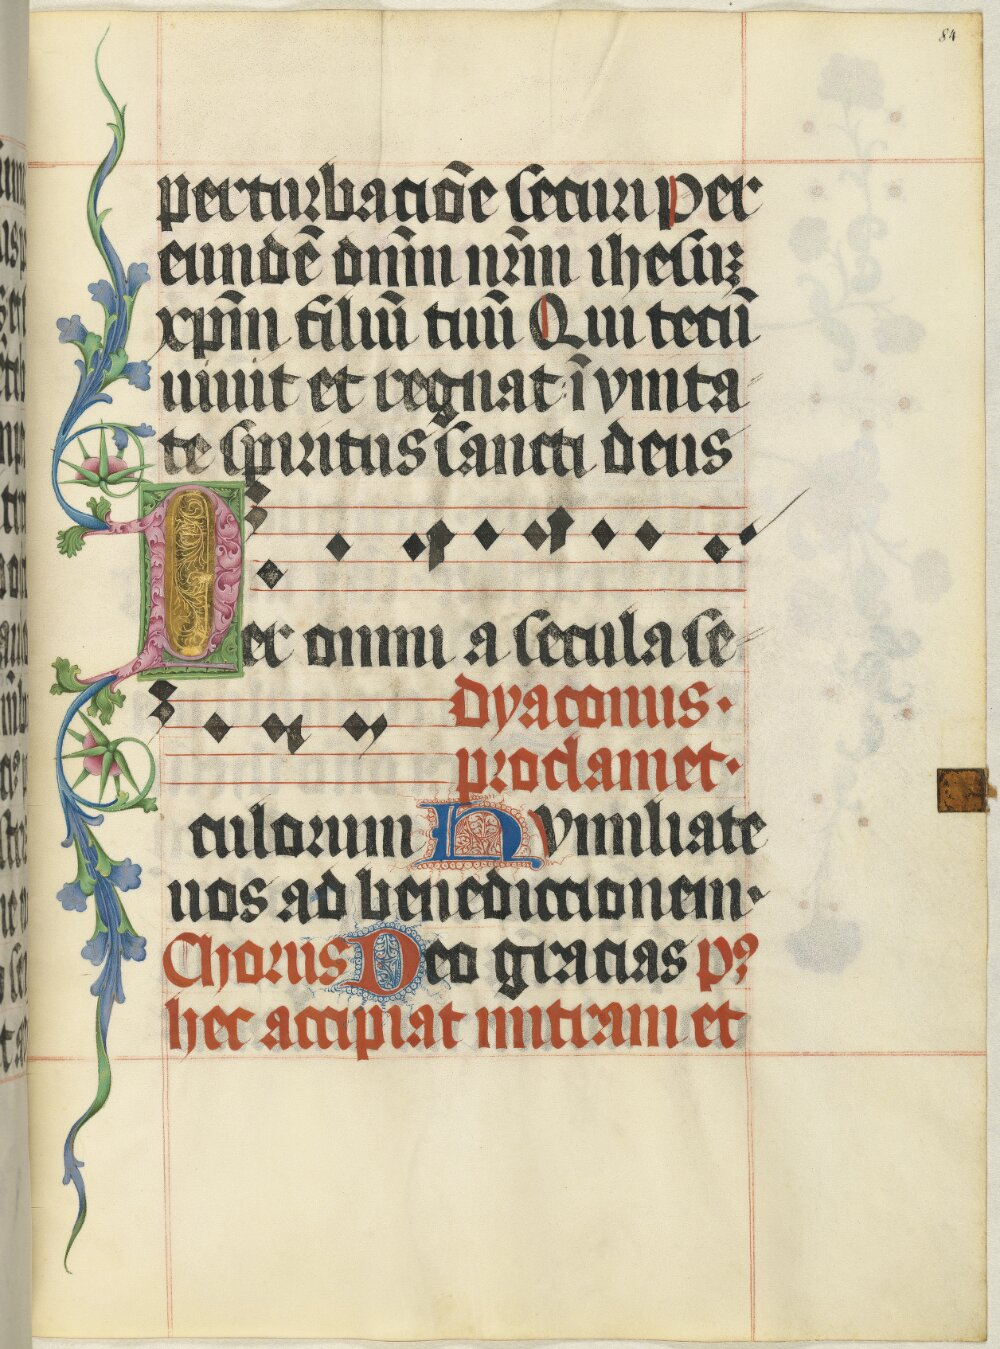 84
perturbacioe̅ securi per
eunde̅ dn̅m nr̅m ihesuz
xp̅m filiu̅ tuu̅ Qui tecu̅
uiuit et regnat i̅ vnita
te spiritus sancti deus
Per omni a secula se
dyaconus.
proclamet.
culorum Hvmiliate
uos ad benediccionem.
Chorus Deo gracias pꝰ
hec accipiat mitram et